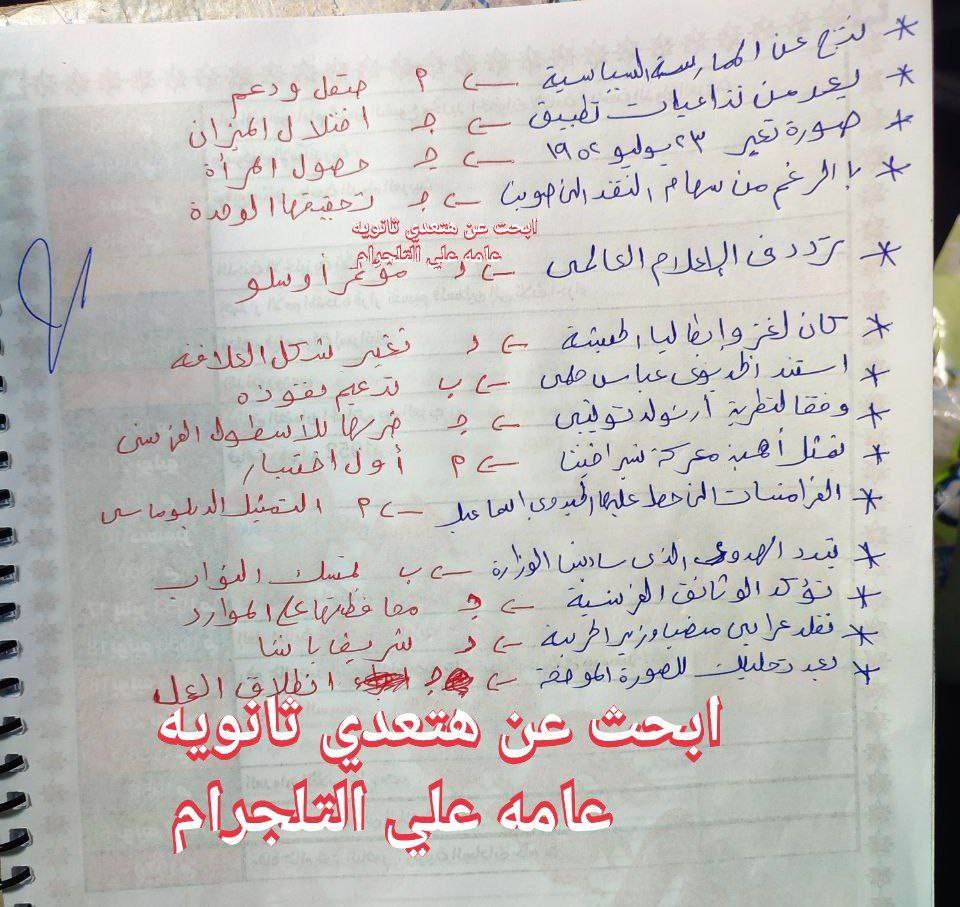 * نتج عن الممارسة السياسية ← م صقل ودعم
* يعد من تداعيات تطبيق ← جـ اختلال الميزان
* صورة تغير ٢٣ يوليو ١٩٥٢ ← جـ حصول المرأة
* بالرغم من سهام النقد التى صوبت ← جـ تحقيقها الوحدة
ابحث عن هتعدي ثانويه
عامه علي التلجرام
* تردد فى الإعلام العالمى ← د مؤتمر أوسلو
* كان لغزو إيطاليا الحبشة ← د تغير شكل العلاقة
* استند الخديوى عباس حلمى ← ب تدعيم نفوذه
* وفقا لنظرية أرنولد توينبى ← جـ ضربها للأسطول الفرنسى
* تمثل أهمية معركة شبراخيت ← م أول اختبار
* الفرامانات التى حصل عليها الخديوى اسماعيل ← م التمثيل الدبلوماسى
* تبدد الهدوء الذى ساد بين الوزارة ← ب تمسك النواب
* تؤكد الوثائق الفرنسية ← جـ محافظتها على الموارد
* تقلد عرابى منصب وزير الحربية ← د شريف باشا
* بعد تحليلك للصورة الموضحة ← جـ انطلاق العمل
ابحث عن هتعدي ثانويه
عامه علي التلجرام